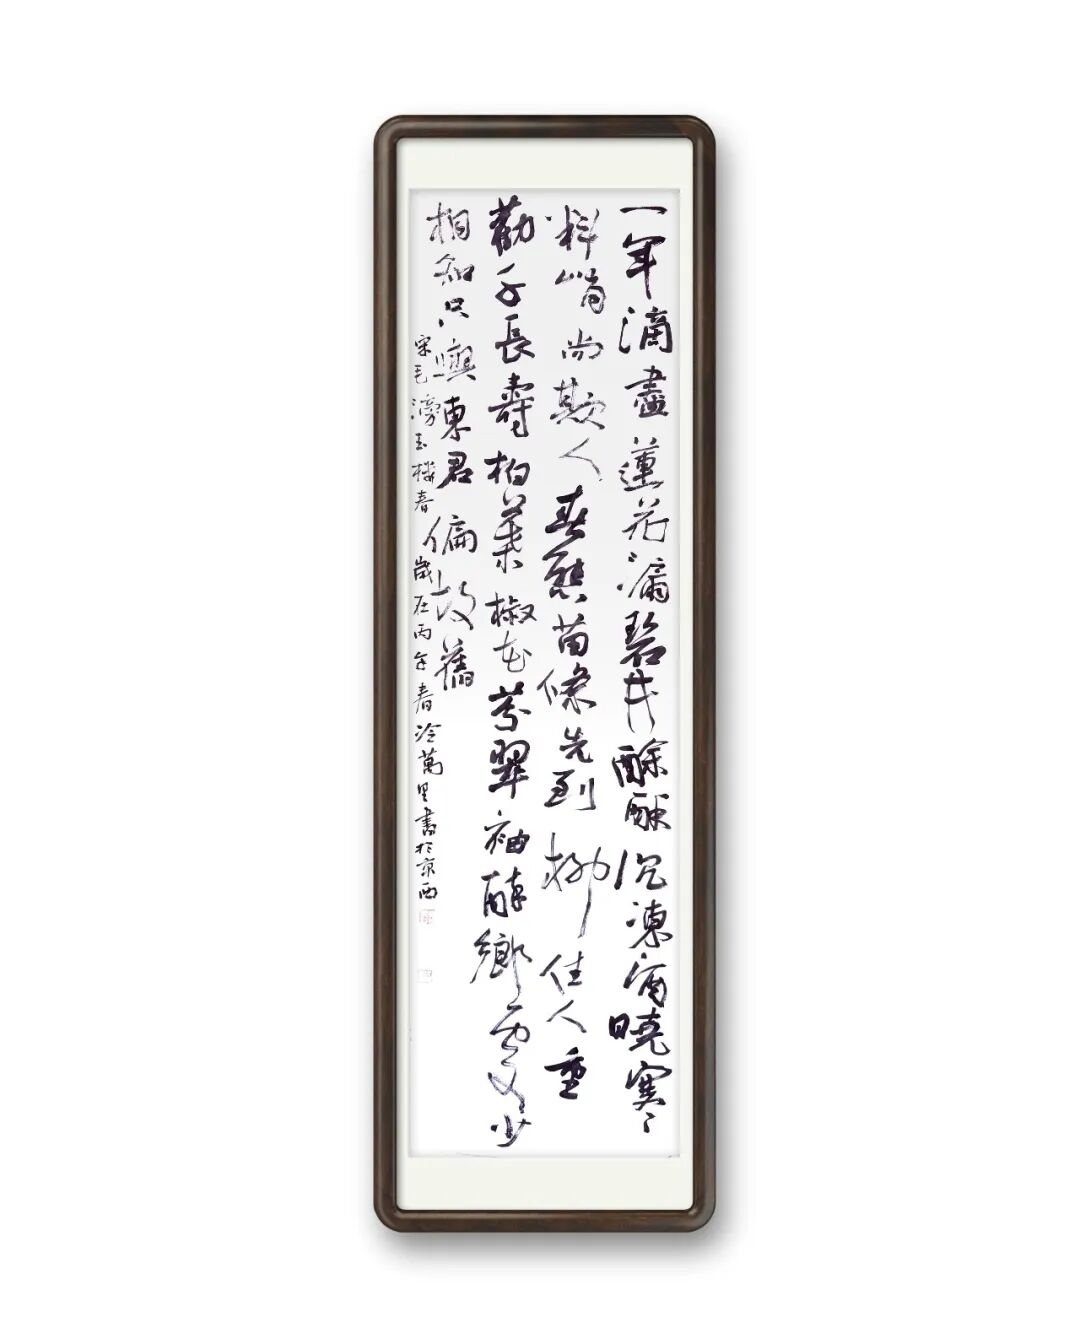 一年滴盡蓮花漏碧井酴酥沉凍酒曉寒
料峭尚欺人春態苗條先到柳佳人重
勸千長壽柏葉椒花芬翠袖醉鄉處少
相知只與東君偏故舊
宋毛滂玉楼春 歲在丙午春冷萬里書於京西